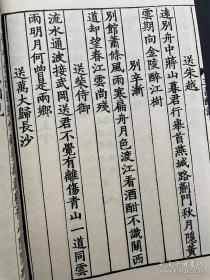 送朱越
遠別舟中蔣山暮君行舉首燕城路薊門秋月隱黃
雲期向金陵醉江樹
別辛漸
別館蕭條風雨寒扁舟月色渡江看酒酣不識關西
道却望春江雲尚殘
送柴侍御
流水通波接武岡送君不覺有離傷青山一道同雲
雨明月何曾是兩鄉
送萬大歸長沙